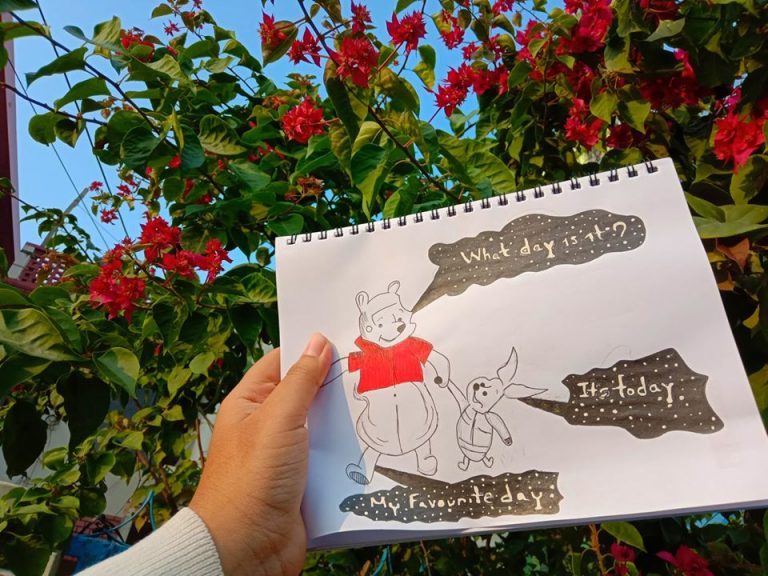 What day is it?
Its today.
My Favourite day